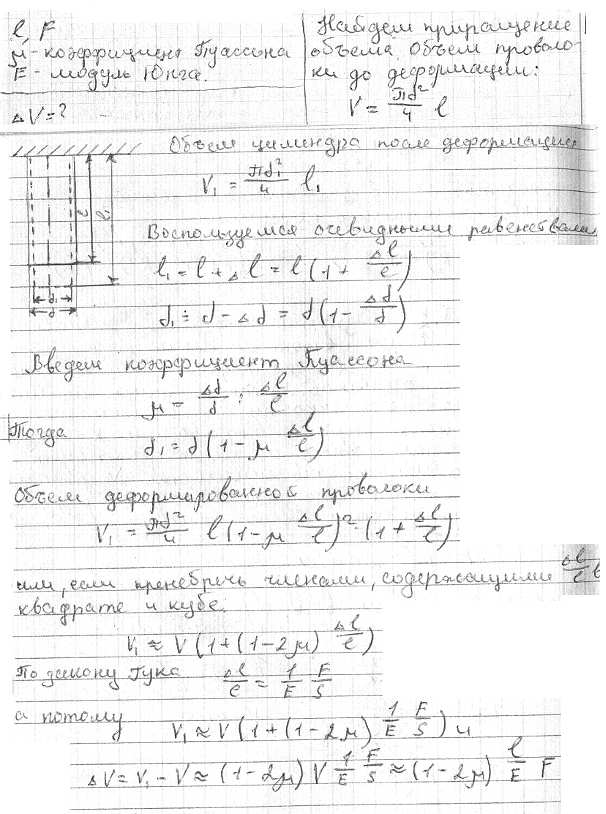 l, F
μ - коэффициент Пуассона
E - модуль Юнга.
ΔV = ?
Найдем приращение
объема. Объем проволо-
ки до деформации:
V = πd²/4 l
Объем цилиндра после деформации
V₁ = πd₁²/4 l₁
l
l₁
d₁
d
Воспользуемся очевидными равенствами
l₁ = l + Δl = l(1 + Δl/l)
d₁ = d - Δd = d(1 - Δd/d)
Введем коэффициент Пуассона
μ = Δd/d : Δl/l
Тогда
d₁ = d(1 - μ Δl/l)
Объем деформированной проволоки
V₁ = πd²/4 l(1 - μ Δl/l)² · (1 + Δl/l)
или, если пренебречь членами, содержащими Δl/l в
квадрате и кубе.
V₁ ≈ V(1 + (1 - 2μ) Δl/l)
По закону Гука Δl/l = 1/E F/S
а потому V₁ ≈ V(1 + (1 - 2μ) 1/E F/S) и
ΔV = V₁ - V ≈ (1 - 2μ) V 1/E F/S ≈ (1 - 2μ) l/E F